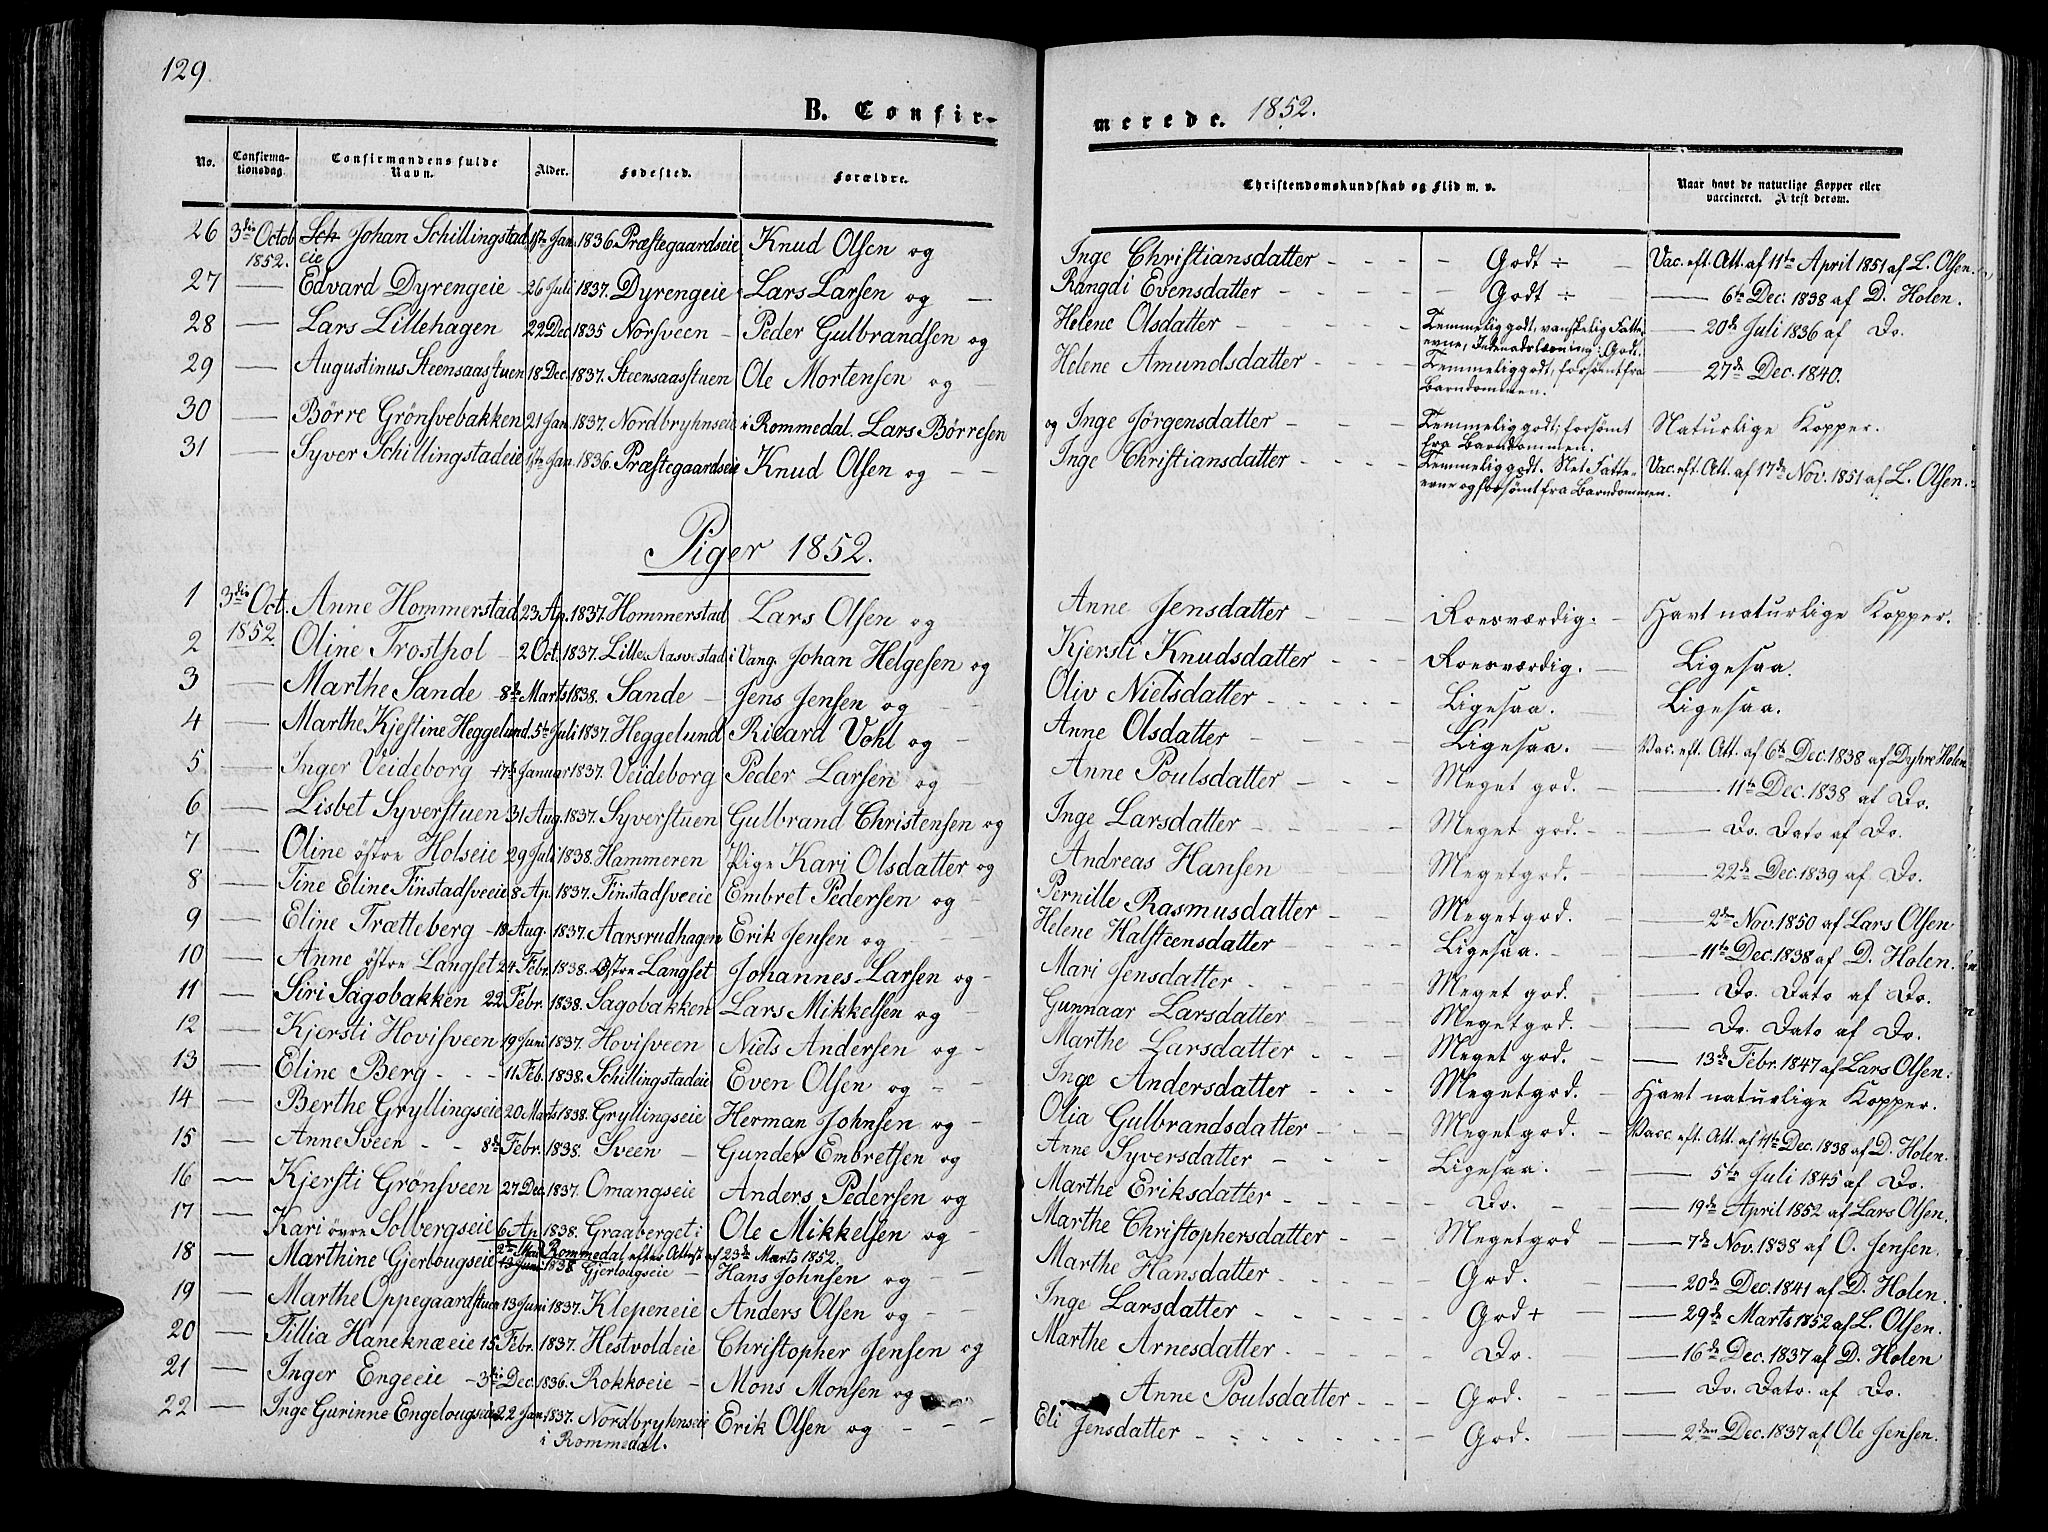 129.
B. Confir-
merede. 1852.
No. Confirma-tionsdag. Confirmandens fulde Navn. Alder. Fødested. Forældre. Christendomskundskab og Flid m. v. Naar havt de naturlige Kopper eller vaccineret. Attest derom.
26 3die Octob. 1852. Sch Johan Schillingstadeie 1ste Jan. 1836. Præstegaardseie Knud Olsen og Inge Christiansdatter - - - - Godt ÷ - Vac. eft. Att. af 11te April 1851 af L. Olsen.
27 — Edvard Dyrengeie - 26 Juli 1837. Dyrengeie Lars Larsen og — Rangdi Evensdatter - - - - - Godt ÷ — 6te Dec. 1838 af D. Holen.
28 — Lars Lillehagen 22 Dec. 1835 Norsveen - Peder Gulbrandsen og Helene Olsdatter - - - - Temmelig godt, vanskelig Fatte-evne, Indenadslæsning: God. — 20de Juli 1836 af Do.
29 — Augustinus Steensaasstuen 18 Dec. 1837. Steensaasstuen Ole Mortensen og - Helene Amundsdatter - - - Temmelig godt, forsömt fra Barndommen. — 27de Dec. 1840.
30 — Börre Grönsvebakken 21 Jan. 1837. Nordbryhnseie i Rommedal. Lars Börresen og Inge Jørgensdatter - - - - Temmelig godt; forsömt fra Barndommen. Naturlige Kopper.
31 — Syver Schillingstadeie 1ste Jan. 1836. Præstegaardseie Knud Olsen og - - Inge Christiansdatter - - - - Temmelig godt. Net Fatte-evne og forsömt fra Barndommen. Vac. eft. Att. af 17de Nov. 1851 af L. Olsen.
Piger 1852.
1 3die Oct. 1852. Anne Hommerstad 23 Ap. 1837. Hommerstad Lars Olsen og Anne Jensdatter - - - Roesværdig. - Havt naturlige Kopper.
2 Oline Trosthol - 2 Oct. 1837. Lille Aasvestad i Vang. Johan Helgesen og Kjersti Knudsdatter - - - Roesværdig. — Ligesaa.
3 — Marthe Sande - 8de Marts 1838. Sande - Jens Jensen og - - Oliv Nielsdatter - - - - - Ligesaa. — Ligesaa.
4 — Marthe Kjestine Heggelund. 5te Juli 1837. Heggelund Ricard Vohl og - Anne Olsdatter - - - - Ligesaa. — Vac. eft. Att. af 6te Dec. 1838 af Dyhre Holen
5 — Inger Veideborg 17de Januar 1837. Veideborg Peder Larsen og - Anne Poulsdatter - - - - Meget god. — 11te Dec. 1838 af Do.
6 — Lisbet Syverstuen 31 Aug. 1837. Syverstuen Gulbrand Christensen og Inge Larsdatter - - - - Meget god. - — Do. Dato af Do.
7 — Oline östre Holseie 29 Juli 1838. Hammeren Pige Kari Olsdatter og Andreas Hansen - - - Meget god. — 22de Dec. 1839 af Do.
8 — Tine Eline Finstadsveeie 8 Ap. 1837. Finstadsveeie Embret Pedersen og - Pernille Rasmusdatter - - - Meget god. — 2den Nov. 1850 af Lars Olsen
9 — Eline Tratteberg - 18 Aug. 1837. Aarsrudhagen Erik Jensen og - - Helene Halsteensdatter - - - - Ligesaa. - — 11te Dec. 1838 af D. Holen.
10 — Anne östre Langset 24 Febr. 1838. Östre Langset Johannes Larsen og - Mari Jensdatter - - - - Meget god. — Do. Dato af Do.
11 — Siri Sagobakken 22 Febr. 1838. Sagobakken Lars Mikkelsen og - Gunnaar Larsdatter - - - Meget god. — Do. Dato af Do.
12 — Kjersti Hovisveen 19 Juni 1837. Hovisveen Niels Andersen og - Marthe Larsdatter - - - Meget god. — 13de Febr. 1847 af Lars Olsen.
13 — Eline Berg - - - 11 Feb. 1838. Schillingstadeie Even Olsen og - - Inge Andersdatter - - - Meget god. - Havt naturlige Kopper.
14 — Berthe Gryllingseie 20 Marts 1838. Gryllingseie Herman Johnsen og - Olia Gulbrandsdatter - - - Meget god. - Vacc. eft. Att. af 11te Dec. 1838 af D. Holen.
15 — Anne Sveen - - 8de Febr. 1838. Sveen - Gunder Embretsen og Anne Syversdatter - - - Ligesaa. — 5te Juli 1845 af Do.
16 — Kjersti Grönsveen 27 Dec. 1837. Omangseie Anders Pedersen og Marthe Eriksdatter - - - - Do. - — 19de April 1852 af Lars Olsen.
17 — Kari övre Solbergseie 6 Ap. 1838. Graaberget i Rommedal efter Attest af 23de Marts 1852. Ole Mikkelsen og Marthe Christophersdatter - - Meget god — 7de Nov. 1838 af O. Jensen.
18 — Marthine Gjerlougseie 13 Juni 1838 Gjerlougseie - Hans Johnsen og - - Marthe Hansdatter - - - - God. — 20de Dec. 1841 af D. Holen.
19 — Marthe Oppegaardstuen 13 Juni 1837. Klepeneie Anders Olsen og - Inge Larsdatter - - - - God + — 29de Marts 1852 af L. Olsen.
20 — Tillia Haneknæeie 15 Febr. 1837. Hestvoldeie Christopher Jensen og Marthe Arnesdatter - - - - Do. — 16de Dec. 1837 af D. Holen
21 — Inger Engeeie - 3die Dec. 1836. Rokkoeie - Mons Monsen og Anne Poulsdatter - - - God. — Do. Dato. af Do.
22 — Inge Gurinne Engelougseie 22 Jan. 1837. Nordbryhnseie i Rommedal. Erik Olsen og - - Eli Jensdatter - - - - - God. — 2den Dec. 1837 af Ole Jensen.